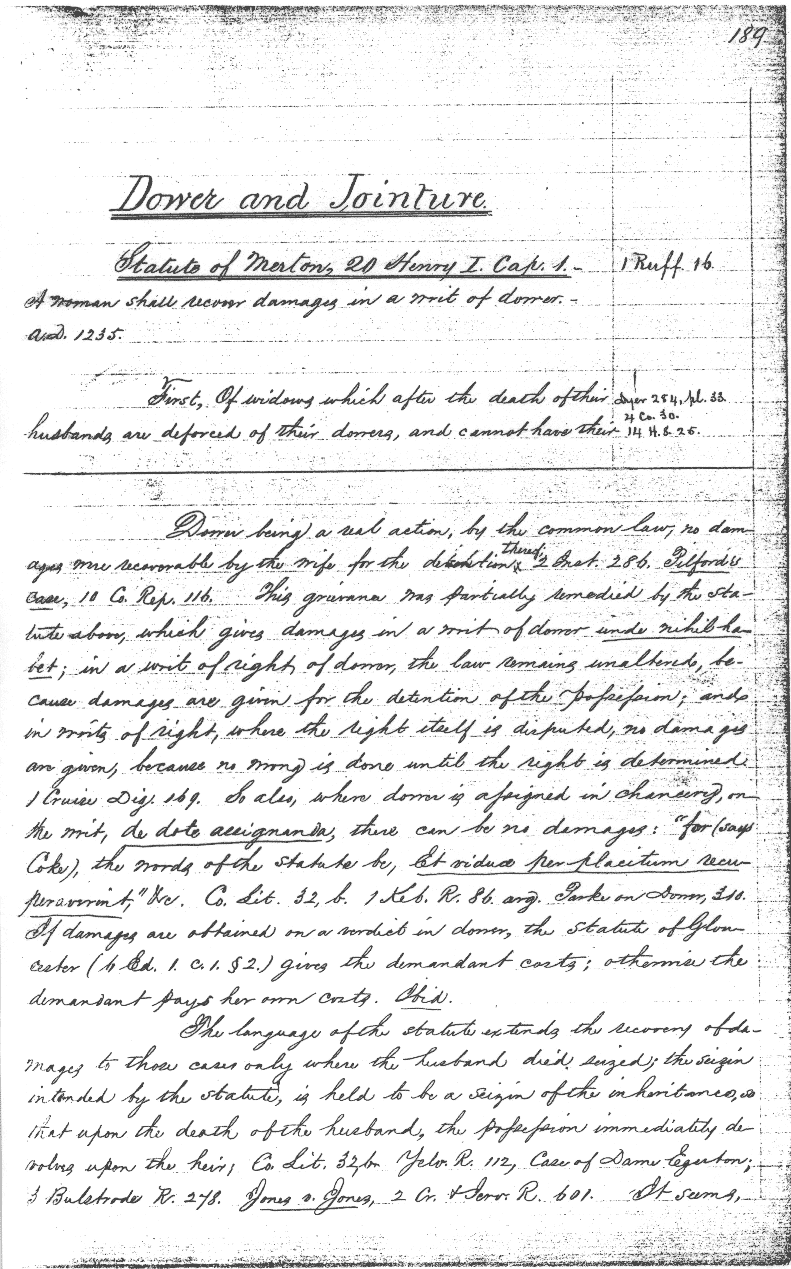 189
Dower and Jointure.
Statute of Merton, 20 Henry I. Cap. 1. - 1 Ruff. 16.
A woman shall recover damages in a writ of dower. -
A.D. 1235.
First, Of widows which after the death of their Dyer 284, pl. 33.
4 Co. 30.
husbands are deforced of their dowers, and cannot have their 14 H. 8. 25.
Dower being a real action, by the common law, no dam-
ages were recoverable by the wife for the detention thereof, 2 Inst. 286. Pilford's
case, 10 Co. Rep. 116. This grievance was partially remedied by the sta-
tute above, which gives damages in a writ of dower unde nihil ha-
bet; in a writ of right of dower, the law remains unaltered, be-
cause damages are given for the detention of the possession; and
in writs of right, where the right itself is disputed, no damages
are given, because no wrong is done until the right is determined.
1 Cruise Dig. 169. So also, where dower is assigned in chancery, on
the writ, de dote assignanda, there can be no damages: "for (says
Coke), the words of the statute be, Et viduae per placitum recu-
peraverint," &c. Co. Lit. 32, b. 1 Keb. R. 86. arg. Parke on Dower, 310.
If damages are obtained on a verdict in dower, the statute of Glou-
cester (6 Ed. 1. c. 1. § 2.) gives the demandant costs; otherwise the
demandant pays her own costs. Ibid.
The language of the statute extends the recovery of da-
mages to those cases only where the husband died seized; the seizin
intended by the statute, is held to be a seizin of the inheritance, so
that upon the death of the husband, the possession immediately de-
volves upon the heir; Co. Lit. 32, b. Yelv. R. 112, Case of Dame Egerton;
3 Bulstrode R. 278. Jones v. Jones, 2 Cr. & Jerv. R. 601. It seems,